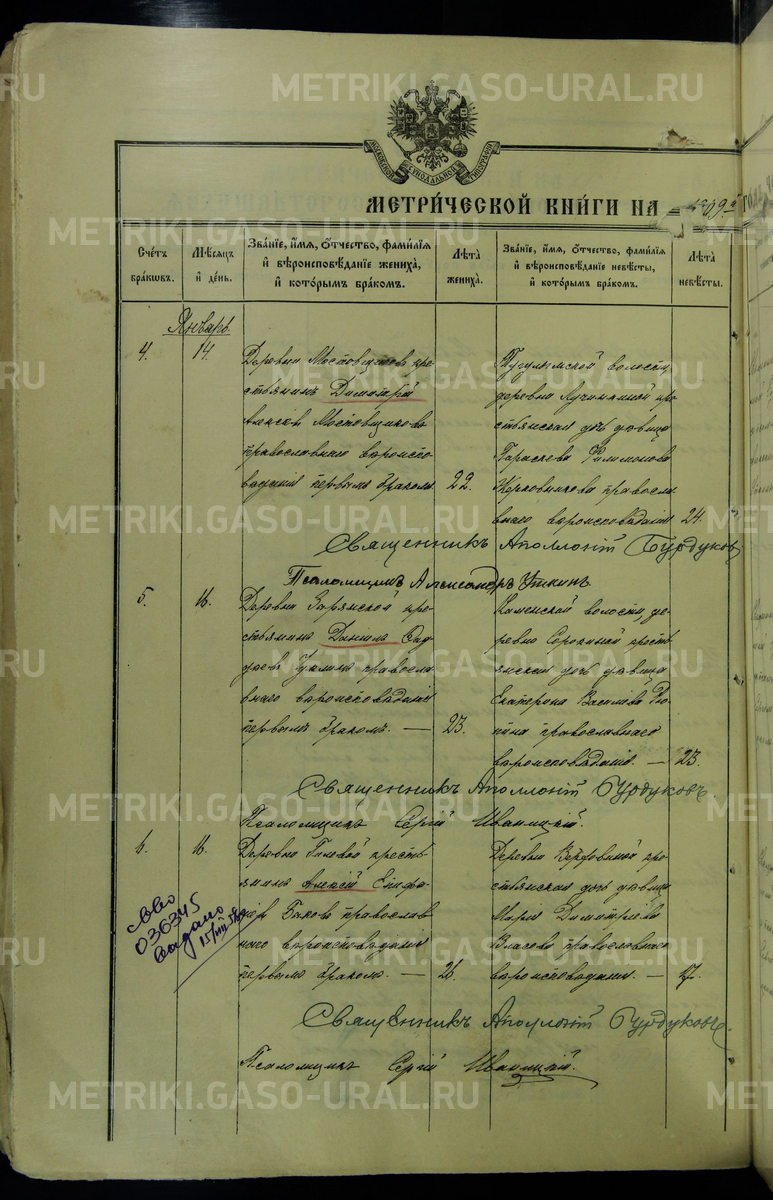 METRIKI.GASO-URAL.RU
МОСКОВСКОЙ СѴНОДАЛЬНОЙ ТИПОГРАФІИ
МЕТРИ́ЧЕСКОЙ КНИ́ГИ НА 1909 й ГОДЪ
Сче́тъ бра́кѡвъ.
Мѣ́сяцъ и҆ де́нь.
Зва́нїе, и҆́мѧ, ѻ҆́тчество, фами́лїѧ и҆ вѣроисповѣ́данїе жениха̀, и҆ кото́рымъ бра́комъ.
Лѣ́та жениха̀.
Зва́нїе, и҆́мѧ, ѻ҆́тчество, фами́лїѧ и҆ вѣроисповѣ́данїе невѣ́сты, и҆ кото́рымъ бра́комъ.
Лѣ́та невѣ́сты.
Январь
4.
14.
Деревни кре-
стьянинъ Димитрій
Алексѣевъ Мостовщиковъ
православнаго вѣроиспо-
вѣданія первымъ бракомъ
22.
Тугулымской волости
деревни Лучинкиной кре-
стьянская дочь дѣвица
Параскева Филимонова
православ-
наго вѣроисповѣданія
24.
Священникъ Аполлоній Бурдуковъ
Псаломщикъ Александръ Уткинъ
5.
16.
Деревни кре-
стьянинъ Даніилъ
православ-
наго вѣроисповѣданія
первымъ бракомъ. —
23.
Каменской волости, де-
ревни Сорокиной кресть-
янская дочь дѣвица
Екатерина Василіева
православнаго
вѣроисповѣданія. —
23.
Священникъ Аполлоній Бурдуковъ.
Псаломщикъ Сергій Иваницкій.
6.
16.
Деревни Гилевой кресть-
янинъ Алексій Епифа-
ніевъ Быковъ православ-
наго вѣроисповѣданія
первымъ бракомъ. —
21.
Деревни кре-
стьянская дочь дѣвица
Марія Димитріева
Власова православнаго
вѣроисповѣданія. —
17.
Священникъ Аполлоній Бурдуковъ.
Псаломщикъ Сергій Иваницкій.
036345
выдано